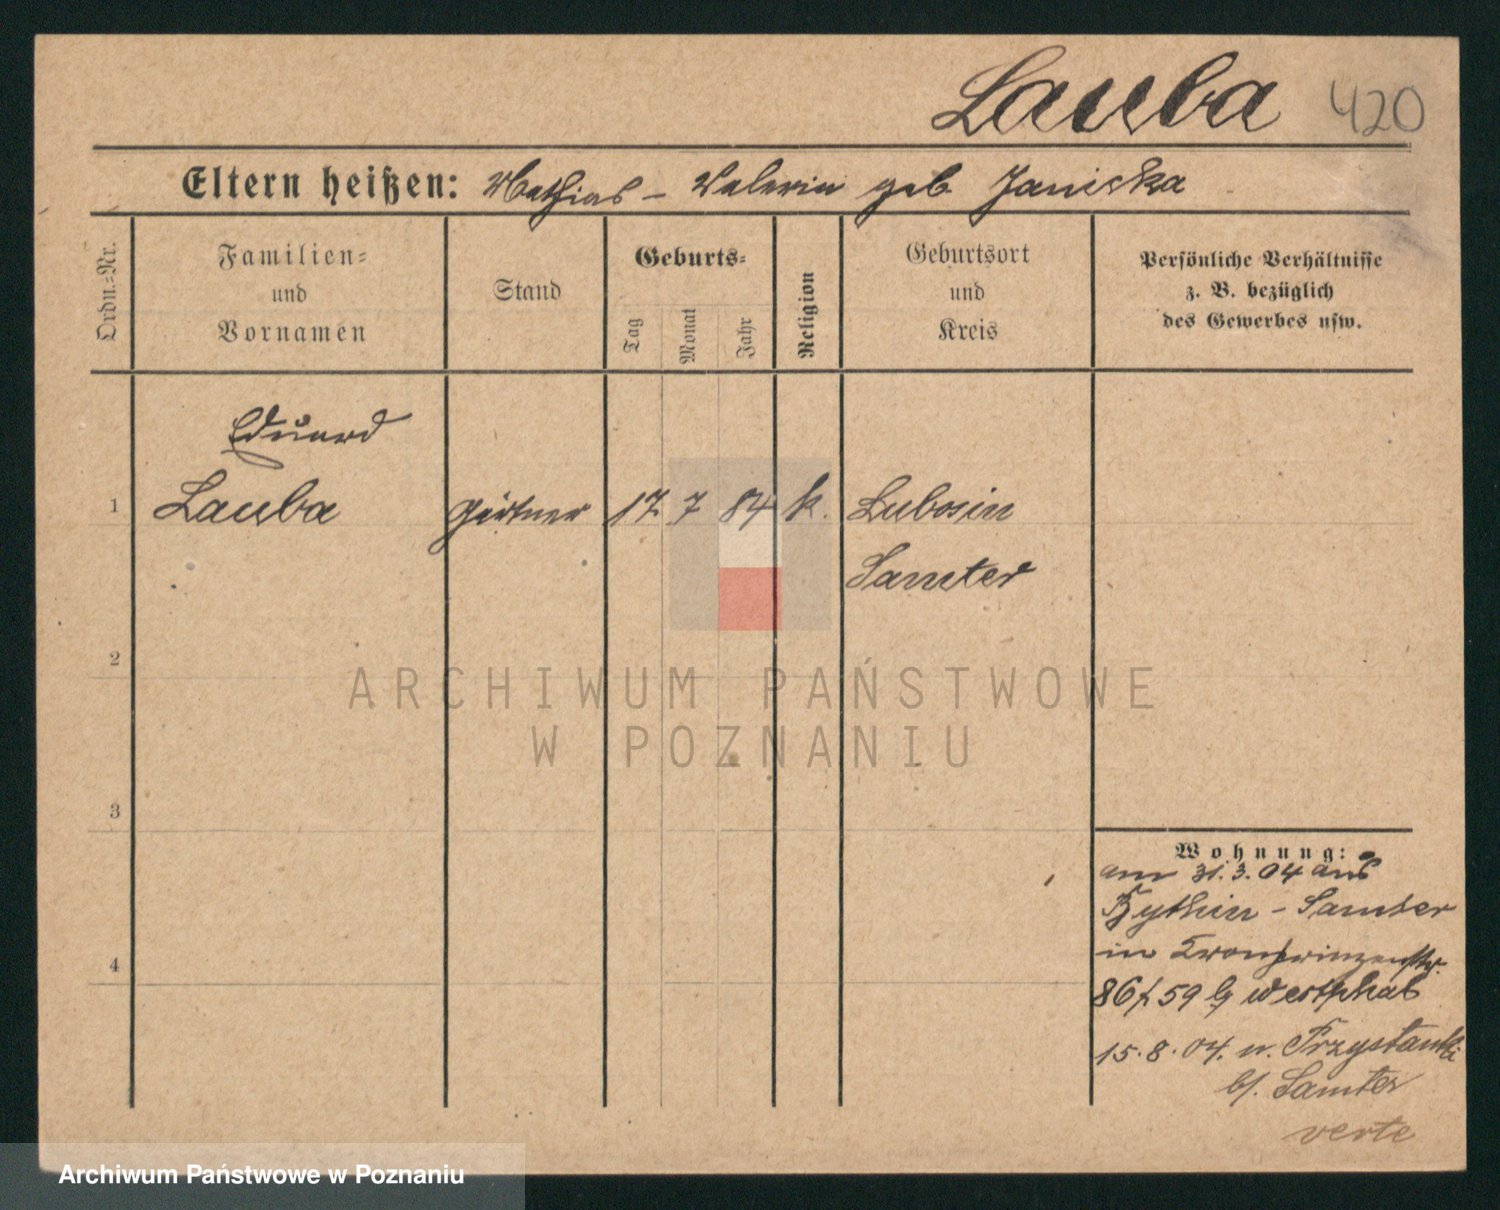 Lauba 420
Eltern heißen: Mathias – Valeria geb Janiska
Ordn.=Nr.
Familien=
und
Vornamen
Stand
Geburts=
Tag
Monat
Jahr
Religion
Geburtsort
und
Kreis
Persönliche Verhältnisse
z. B. bezüglich
des Gewerbes usw.
Eduard
1 Lauba Gärtner 17 7 84 k. Lubosin
Samter
2
3
4
ARCHIWUM PAŃSTWOWE
W POZNANIU
Wohnung:
am 31.3.04 aus
Bythin – Samter
in Kronprinzenstr.
86/59 b/ Westphal
15.8.04. n. Przystanki
b/. Samter
verte
Archiwum Państwowe w Poznaniu